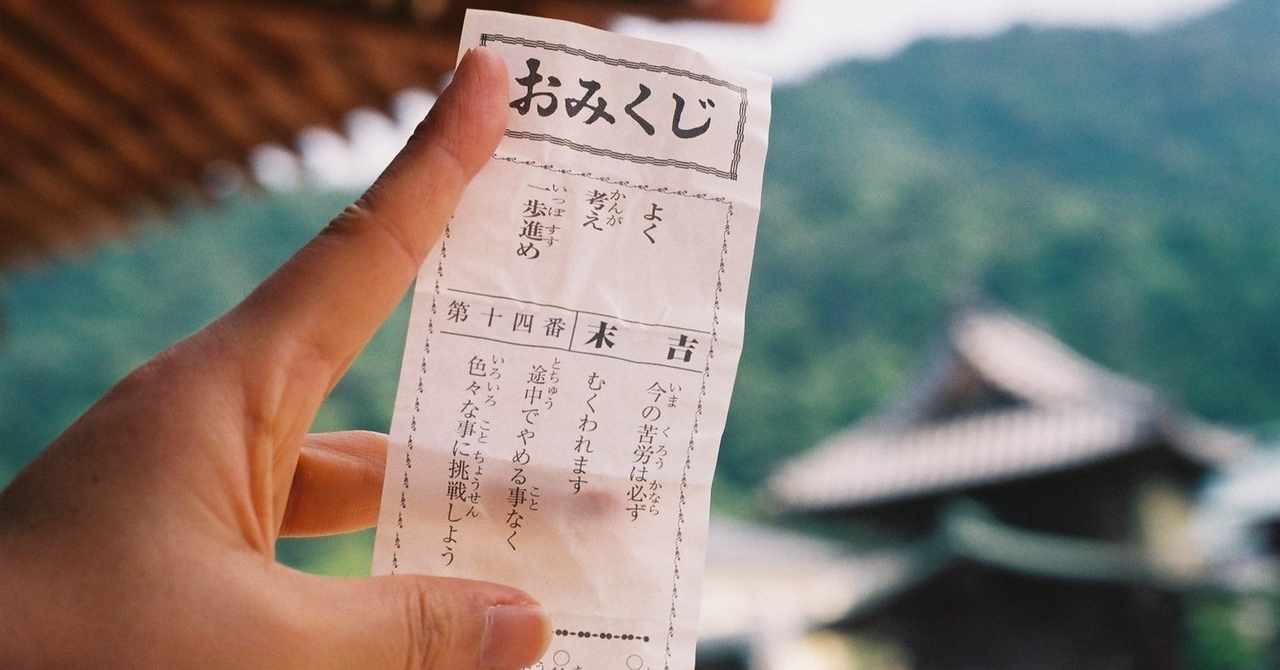 おみくじ
よく
考え
一歩進め
第十四番
末吉
今の苦労は必ず
むくわれます
途中でやめる事なく
色々な事に挑戦しよう